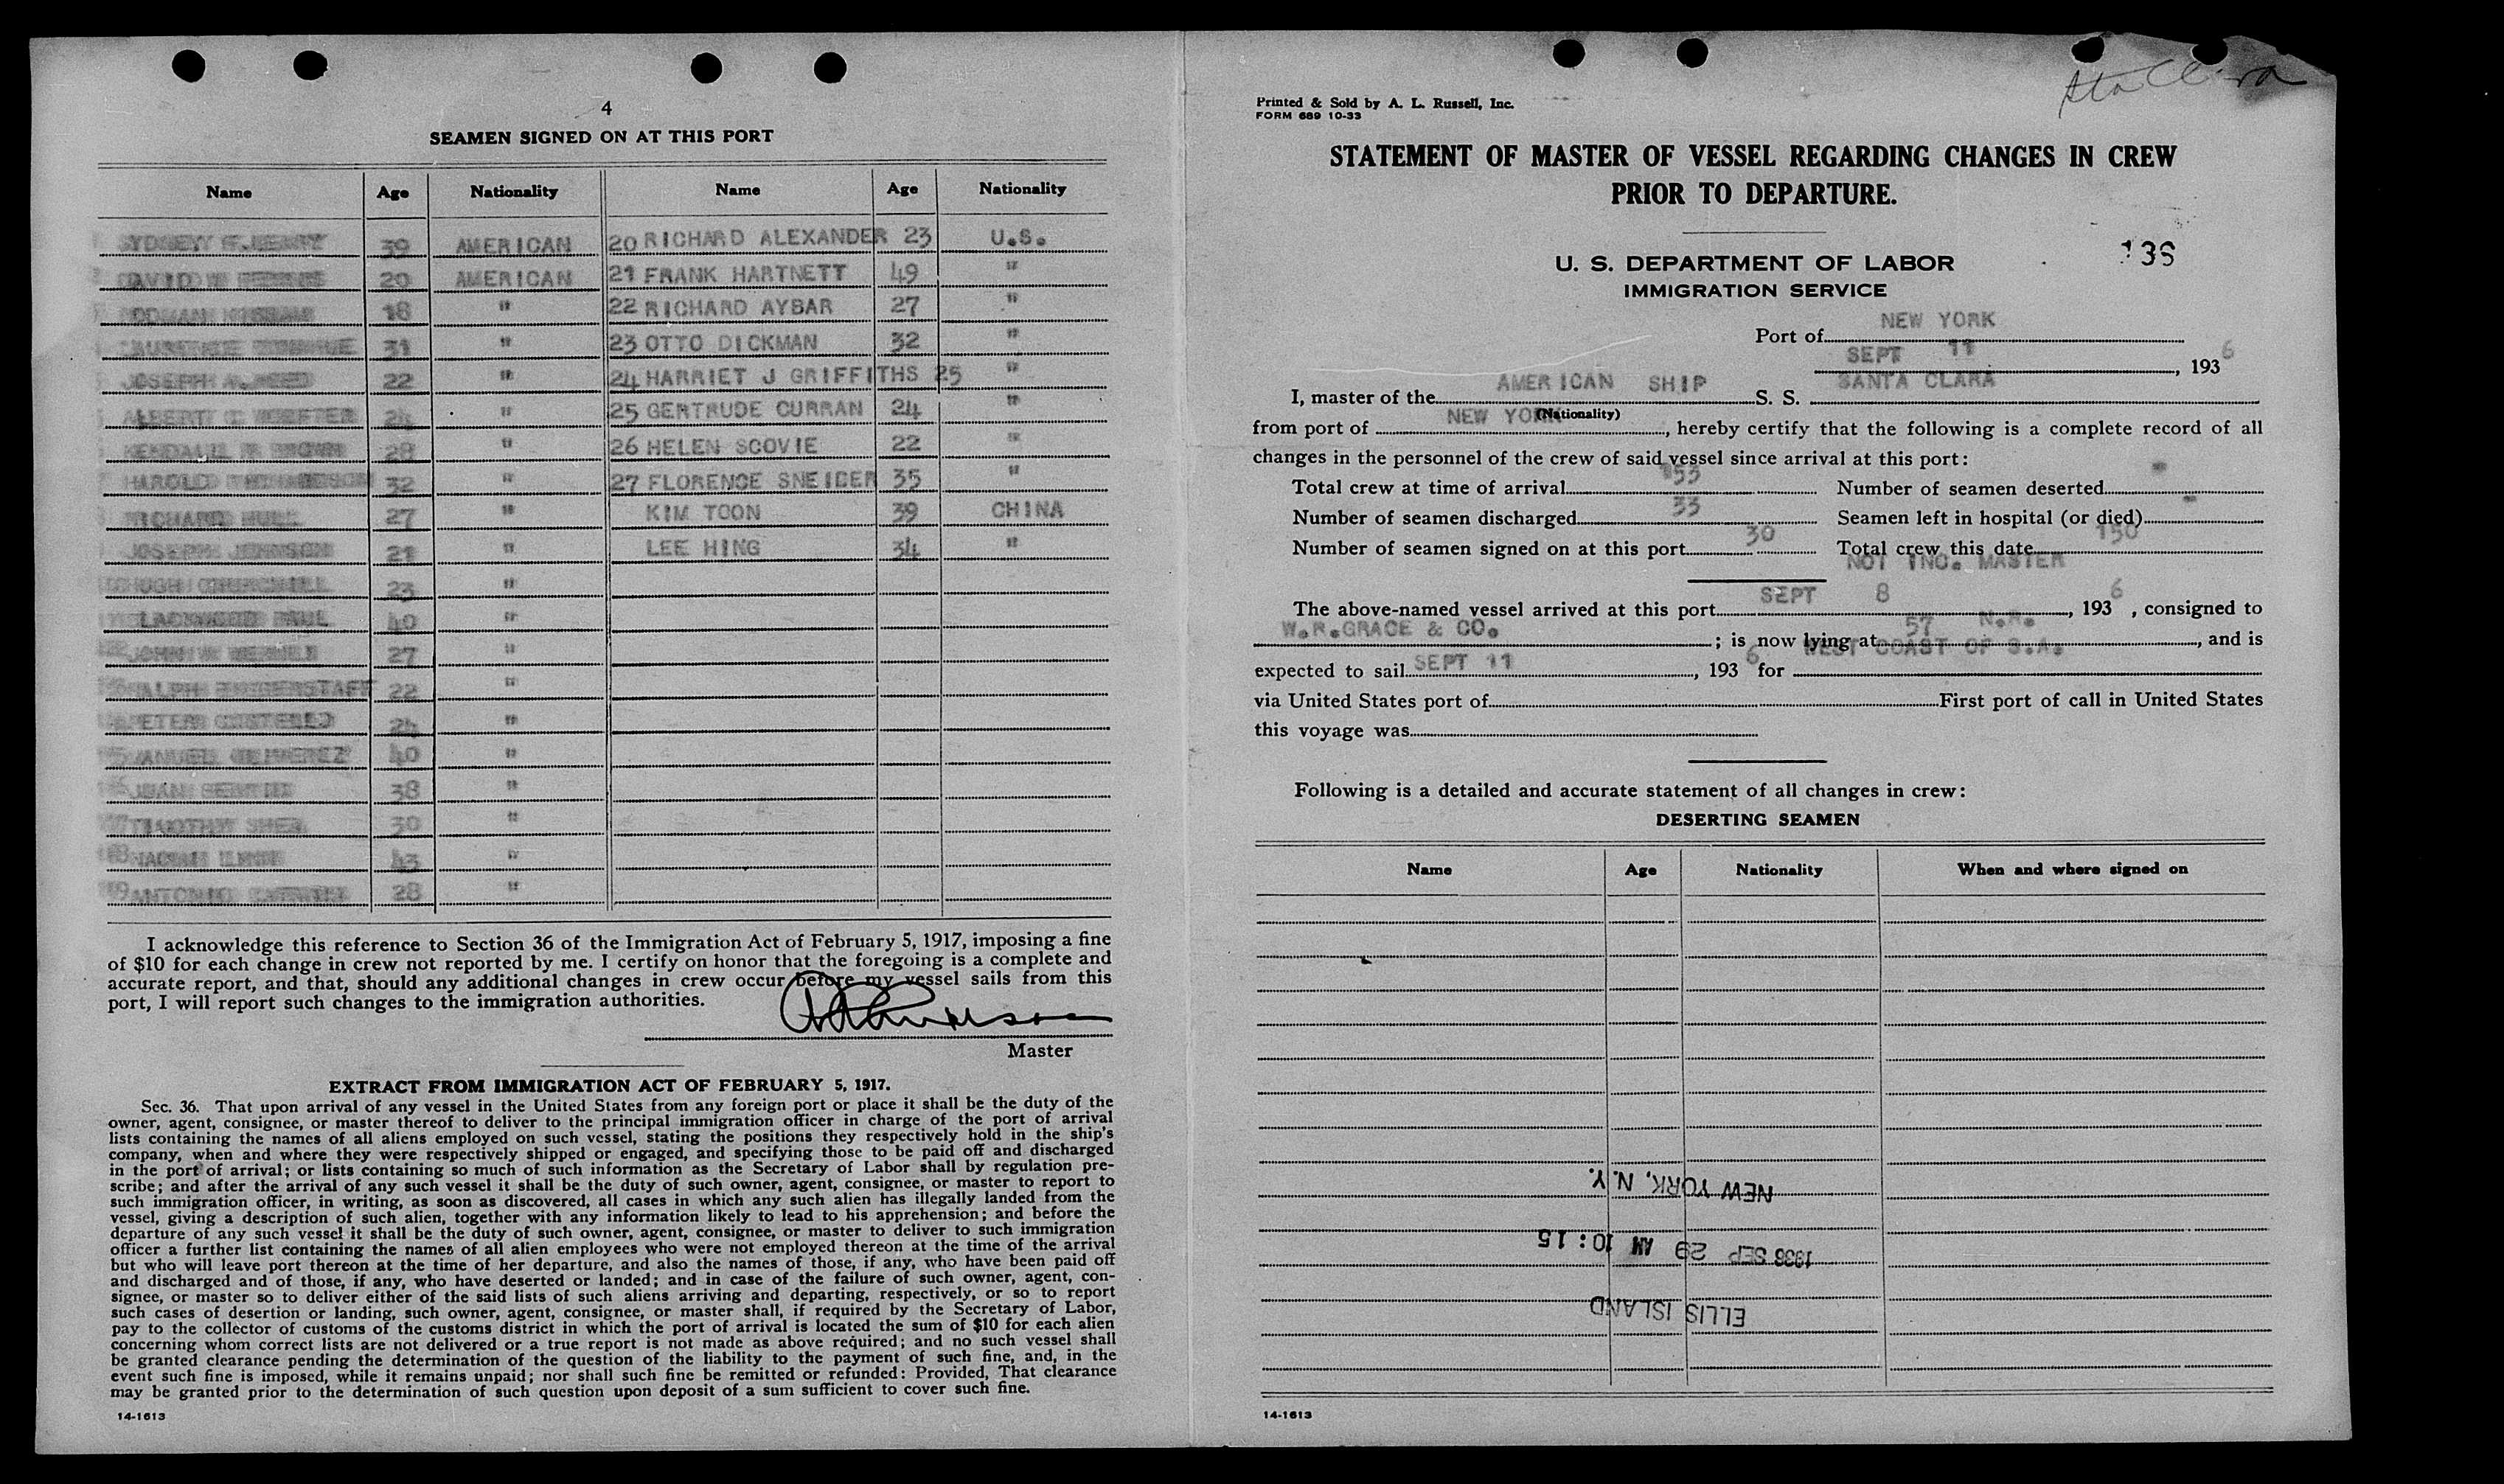 4
SEAMEN SIGNED ON AT THIS PORT
Name Age Nationality Name Age Nationality
39 AMERICAN 20 RICHARD ALEXANDER 23 U.S.
20 AMERICAN 21 FRANK HARTNETT 49 "
18 " 22 RICHARD AYBAR 27 "
31 " 23 OTTO DICKMAN 32 "
JOSEPH 22 " 24 HARRIET J GRIFFITHS 25 "
ALBERT " 25 GERTRUDE CURRAN 24 "
28 " 26 HELEN SCOVIE 22 "
HAROLD 32 " 27 FLORENCE SNEIDER 35 "
RICHARD 27 " KIM TOON 39 CHINA
JOSEPH JOHNSON 21 " LEE HING 34 "
HUGH 23 "
PAUL 40 "
JOHN 27 "
RALPH 22 "
PETER COSTELLO "
40 "
JUAN 38 "
TIMOTHY SHEA 30 "
43 "
ANTONIO 28 "
I acknowledge this reference to Section 36 of the Immigration Act of February 5, 1917, imposing a fine
of $10 for each change in crew not reported by me. I certify on honor that the foregoing is a complete and
accurate report, and that, should any additional changes in crew occur before my vessel sails from this
port, I will report such changes to the immigration authorities.
Master
EXTRACT FROM IMMIGRATION ACT OF FEBRUARY 5, 1917.
Sec. 36. That upon arrival of any vessel in the United States from any foreign port or place it shall be the duty of the
owner, agent, consignee, or master thereof to deliver to the principal immigration officer in charge of the port of arrival
lists containing the names of all aliens employed on such vessel, stating the positions they respectively hold in the ship's
company, when and where they were respectively shipped or engaged, and specifying those to be paid off and discharged
in the port of arrival; or lists containing so much of such information as the Secretary of Labor shall by regulation pre-
scribe; and after the arrival of any such vessel it shall be the duty of such owner, agent, consignee, or master to report to
such immigration officer, in writing, as soon as discovered, all cases in which any such alien has illegally landed from the
vessel, giving a description of such alien, together with any information likely to lead to his apprehension; and before the
departure of any such vessel it shall be the duty of such owner, agent, consignee, or master to deliver to such immigration
officer a further list containing the names of all alien employees who were not employed thereon at the time of the arrival
but who will leave port thereon at the time of her departure, and also the names of those, if any, who have been paid off
and discharged and of those, if any, who have deserted or landed; and in case of the failure of such owner, agent, con-
signee, or master so to deliver either of the said lists of such aliens arriving and departing, respectively, or so to report
such cases of desertion or landing, such owner, agent, consignee, or master shall, if required by the Secretary of Labor,
pay to the collector of customs of the customs district in which the port of arrival is located the sum of $10 for each alien
concerning whom correct lists are not delivered or a true report is not made as above required; and no such vessel shall
be granted clearance pending the determination of the question of the liability to the payment of such fine, and, in the
event such fine is imposed, while it remains unpaid; nor shall such fine be remitted or refunded: Provided, That clearance
may be granted prior to the determination of such question upon deposit of a sum sufficient to cover such fine.
14-1613
Sta Clara
Printed & Sold by A. L. Russell, Inc.
FORM 689 10-33
STATEMENT OF MASTER OF VESSEL REGARDING CHANGES IN CREW
PRIOR TO DEPARTURE.
U. S. DEPARTMENT OF LABOR
IMMIGRATION SERVICE
Port of NEW YORK
SEPT 11, 1936
I, master of the AMERICAN SHIP S. S. SANTA CLARA
(Nationality)
from port of NEW YORK, hereby certify that the following is a complete record of all
changes in the personnel of the crew of said vessel since arrival at this port:
Total crew at time of arrival 153 Number of seamen deserted -
Number of seamen discharged 33 Seamen left in hospital (or died) -
Number of seamen signed on at this port 30 Total crew this date 150
NOT INC. MASTER
The above-named vessel arrived at this port SEPT 8, 1936, consigned to
W.R.GRACE & CO.; is now lying at 57 N.R., and is
expected to sail SEPT 11, 1936 for WEST COAST OF S.A.
via United States port of First port of call in United States
this voyage was
Following is a detailed and accurate statement of all changes in crew:
DESERTING SEAMEN
Name Age Nationality When and where signed on
ELLIS ISLAND
1936 SEP 29 AM 10:15
NEW YORK, N.Y.
14-1613